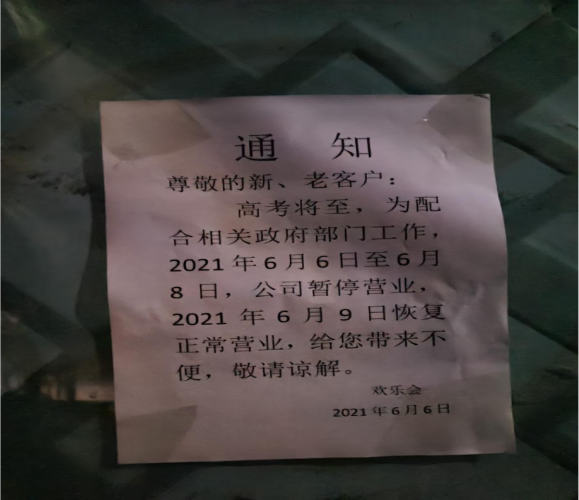 通 知
尊敬的新、老客户：
高考将至，为配
合相关政府部门工作，
2021 年 6 月 6 日至 6 月
8 日，公司暂停营业，
2021 年 6 月 9 日恢复
正常营业，给您带来不
便，敬请谅解。
欢乐会
2021 年 6 月 6 日